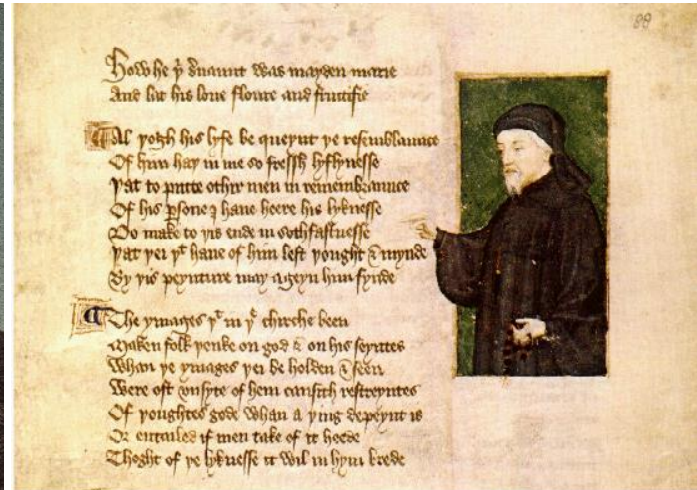 88
How he þͭ s̾uaunt was mayden marie
And lat his loue floure and fructifie
Al þogh his lyfe be queynt þe resemblaunce
Of him haþ in me so fressh lyflynesse
Þat to putte othir men in remembraunce
Of his ꝑsone I haue heere his lyknesse
Do make to þis ende in sothfastnesse
Þat þei þͭ haue of him left þought & mynde
By þis peynture may ageyn him fynde
The ymages þͭ in þͤ chirche been
Maken folk þenke on god & on his seyntes
Whan þe ymages þei be holden & seen
Were oft vnsyte of hem causith restreyntes
Of þoughtes gode whan a þing depeynt is
Or entailed if men take of it heede
Thoght of þe lyknesse it wil in hym brede